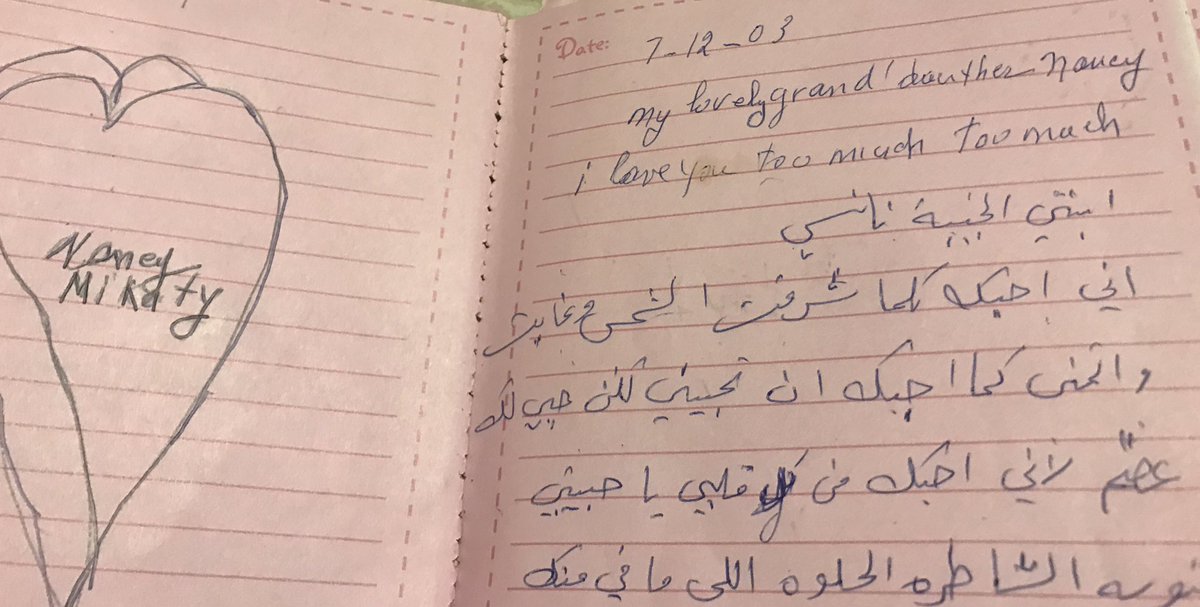 Nancy
Mikaty
Date: 7-12-03
my lovely grand'dauther Nancy
i love you too much too mach
ابنتي الحبيبة نانسي
اني احبك كلما شرقت الشمس وغابت
واتمنى كما احبك ان تحبيني لكن حبي لك
عظيم لأني احبك من كل قلبي يا حبيبتي
الشاطره الحلوه اللي ما في منك